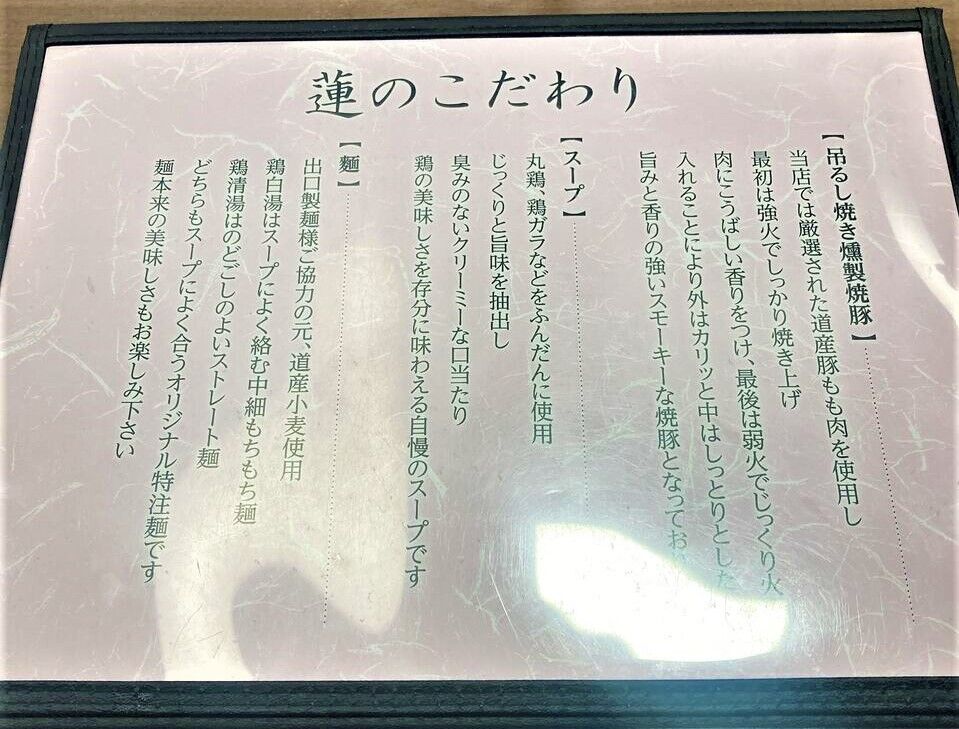 蓮のこだわり
【吊るし焼き燻製焼豚】
当店では厳選された道産豚もも肉を使用し
最初は強火でしっかり焼き上げ
肉にこうばしい香りをつけ、最後は弱火でじっくり火
入れることにより外はカリッと中はしっとりとした
旨みと香りの強いスモーキーな焼豚となってお
【スープ】
丸鶏、鶏ガラなどをふんだんに使用
じっくりと旨味を抽出し
臭みのないクリーミーな口当たり
鶏の美味しさを存分に味わえる自慢のスープです
【麺】
出口製麺様ご協力の元、道産小麦使用
鶏白湯はスープによく絡む中細もちもち麺
鶏清湯はのどごしのよいストレート麺
どちらもスープによく合うオリジナル特注麺です
麺本来の美味しさもお楽しみ下さい